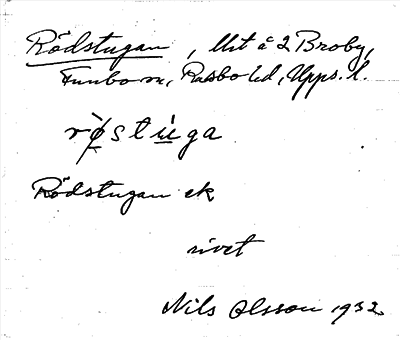 Rödstugan, Uit å 2 Broby,
Funbo sn, Rasbo hd, Upps. l.
rø̀stu̇ga
Rödstugan ek
rivet
Nils Olsson 1932